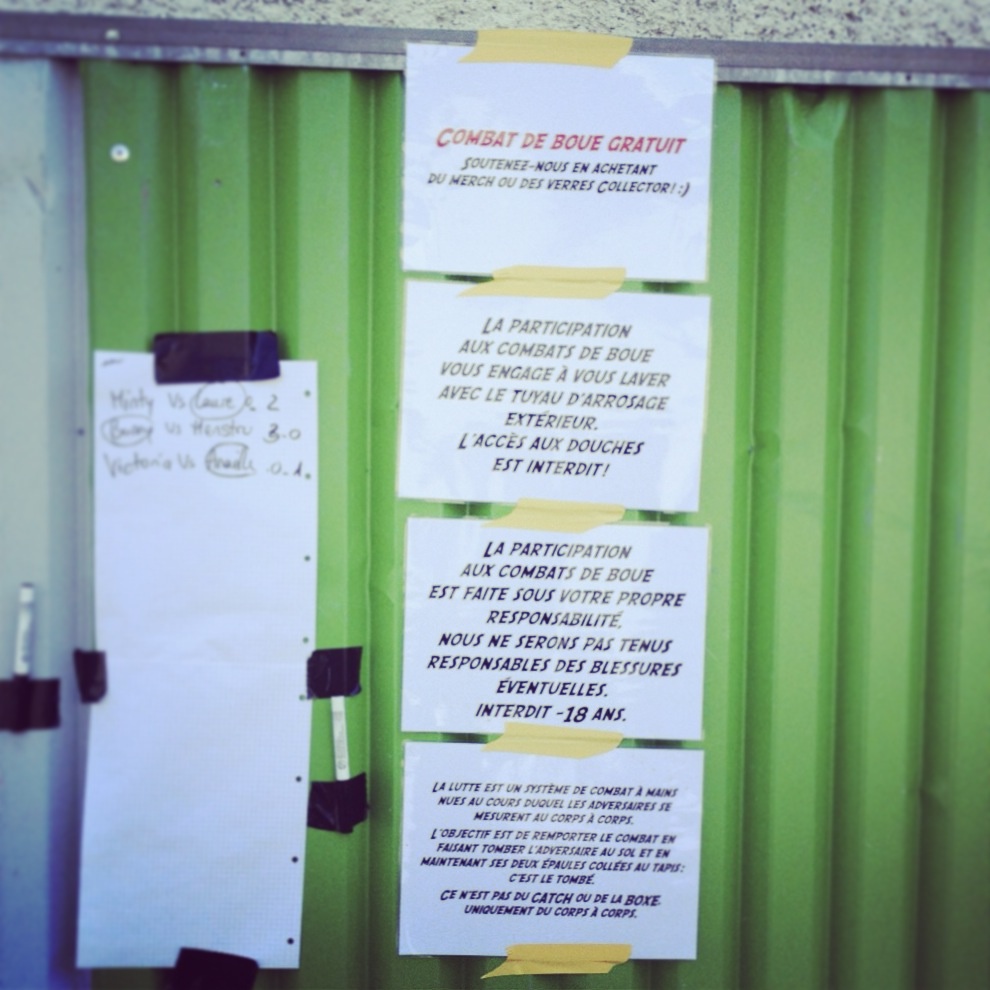 COMBAT DE BOUE GRATUIT
SOUTENEZ-NOUS EN ACHETANT
DU MERCH OU DES VERRES COLLECTOR! :)
LA PARTICIPATION
AUX COMBATS DE BOUE
VOUS ENGAGE À VOUS LAVER
AVEC LE TUYAU D'ARROSAGE
EXTÉRIEUR.
L'ACCÈS AUX DOUCHES
EST INTERDIT!
LA PARTICIPATION
AUX COMBATS DE BOUE
EST FAITE SOUS VOTRE PROPRE
RESPONSABILITÉ,
NOUS NE SERONS PAS TENUS
RESPONSABLES DES BLESSURES
ÉVENTUELLES.
INTERDIT -18 ANS.
LA LUTTE EST UN SYSTÈME DE COMBAT À MAINS
NUES AU COURS DUQUEL LES ADVERSAIRES SE
MESURENT AU CORPS À CORPS.
L'OBJECTIF EST DE REMPORTER LE COMBAT EN
FAISANT TOMBER L'ADVERSAIRE AU SOL ET EN
MAINTENANT SES DEUX ÉPAULES COLLÉES AU TAPIS:
C'EST LE TOMBÉ.
CE N'EST PAS DU CATCH OU DE LA BOXE.
UNIQUEMENT DU CORPS À CORPS.
Minty Vs 2
Vs 0
Victoria Vs 0